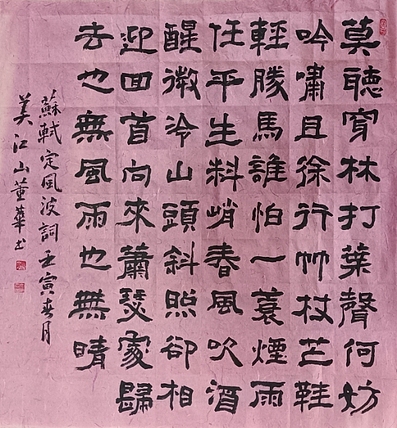 莫聽穿林打葉聲何妨
吟嘯且徐行竹杖芒鞋
輕勝馬誰怕一蓑煙雨
任平生料峭春風吹酒
醒微冷山頭斜照卻相
迎回首向來蕭瑟處歸
去也無風雨也無晴
蘇軾定風波詞壬寅春月
江山董華书